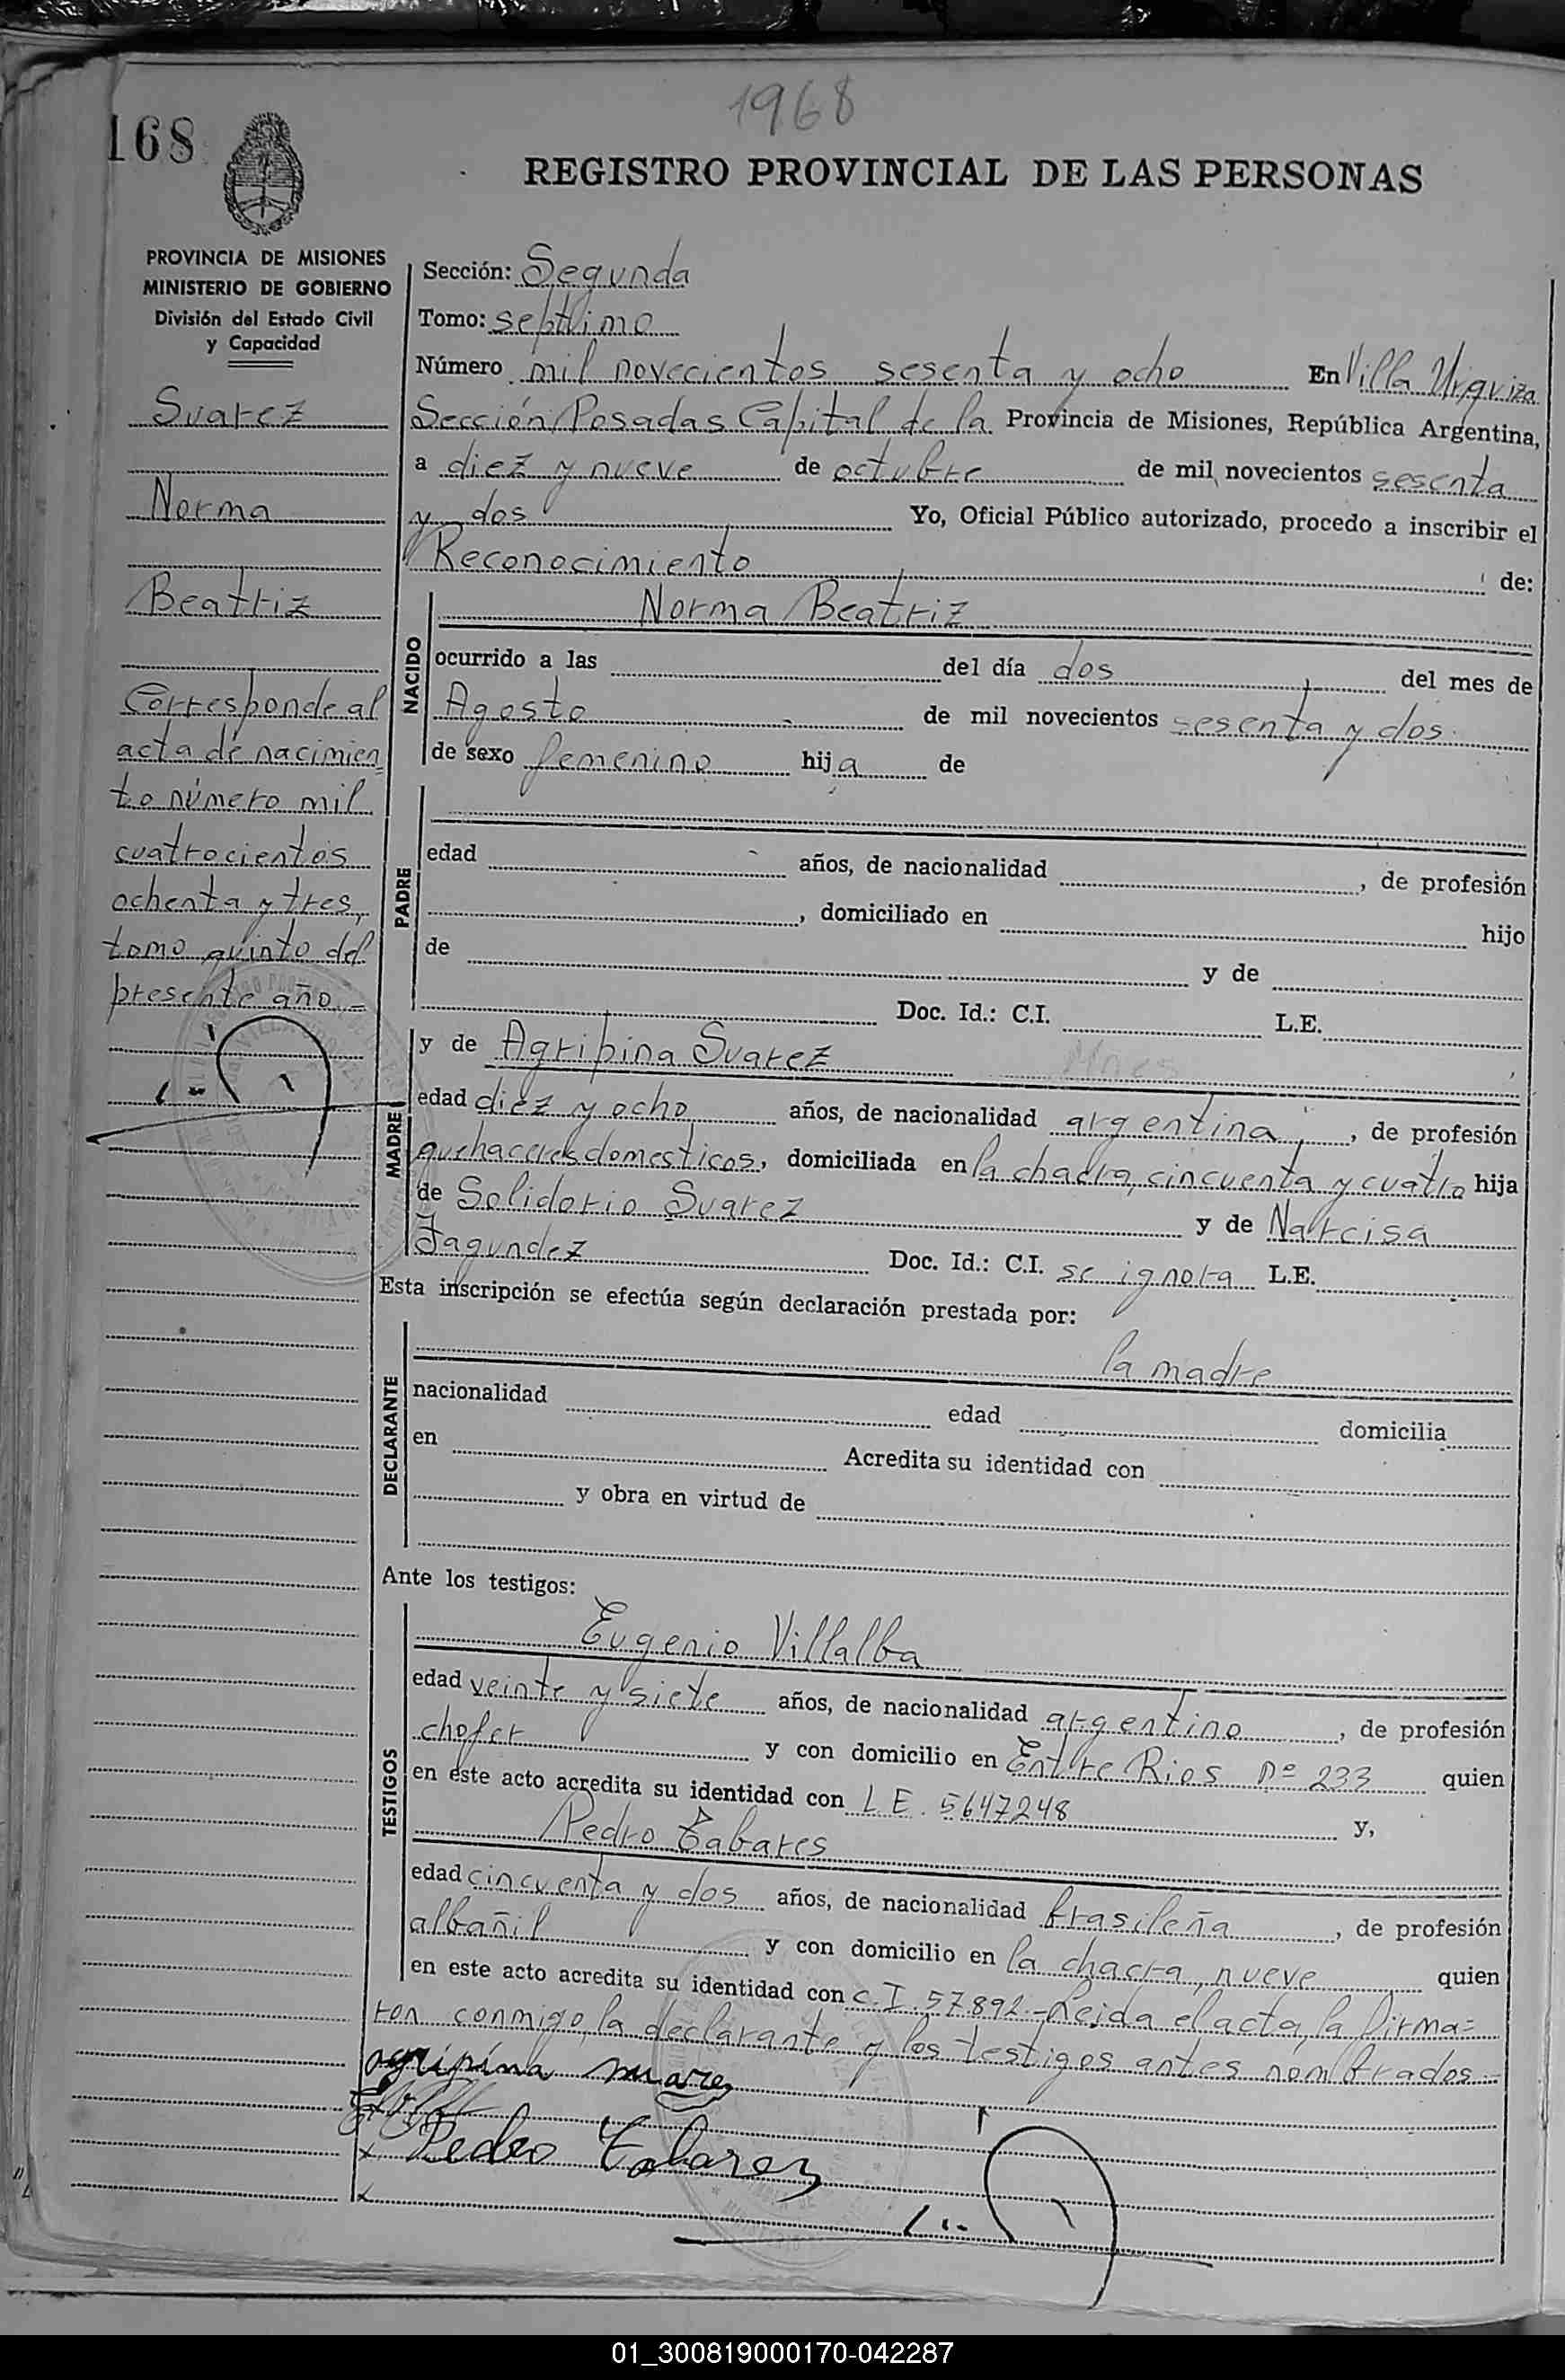 1968
168
REGISTRO PROVINCIAL DE LAS PERSONAS
PROVINCIA DE MISIONES
MINISTERIO DE GOBIERNO
División del Estado Civil
y Capacidad
Suarez
Norma
Beatriz
Corresponde al
acta de nacimien=
to número mil
cuatrocientos
ochenta y tres,
tomo quinto del
presente año.-
Sección: Segunda
Tomo: septimo
Número mil novecientos sesenta y ocho En Villa Urquiza
Sección Posadas Capital de la Provincia de Misiones, República Argentina,
a diez y nueve de octubre de mil novecientos sesenta
y dos Yo, Oficial Público autorizado, procedo a inscribir el
Reconocimiento de:
NACIDO
Norma Beatriz
ocurrido a las del día dos del mes de
Agosto de mil novecientos sesenta y dos
de sexo femenino hija de
PADRE
edad años, de nacionalidad , de profesión
, domiciliado en hijo
de y de
Doc. Id.: C.I. L.E.
MADRE
y de Agripina Suarez
edad diez y ocho años, de nacionalidad argentina, , de profesión
quehaceres domesticos, domiciliada en la chacra, cincuenta y cuatro hija
de Solidorio Suarez y de Narcisa
Fagundez Doc. Id.: C.I. se ignora L.E.
Esta inscripción se efectúa según declaración prestada por:
DECLARANTE
la madre
nacionalidad edad domicilia
en Acredita su identidad con
y obra en virtud de
Ante los testigos:
TESTIGOS
Eugenio Villalba
edad veinte y siete años, de nacionalidad argentino , de profesión
chofer y con domicilio en Entre Rios nº 233 quien
en este acto acredita su identidad con L E. 5647248 y,
Pedro Tabares
edad cincuenta y dos años, de nacionalidad brasileña , de profesión
albañil y con domicilio en la chacra, nueve quien
en este acto acredita su identidad con C.I. 57.892.- Leida el acta, la firma=
ron conmigo, la declarante y los testigos antes nombrados.-
agripina suares
Pedro Tabares
01_300819000170-042287